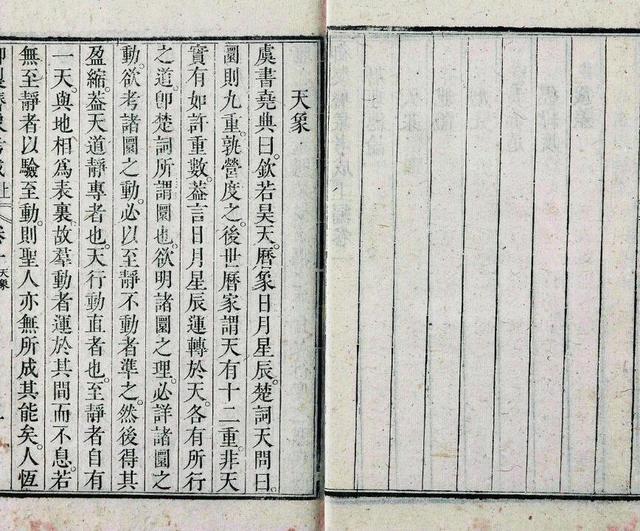 天象
虞書堯典曰。欽若昊天。曆象日月星辰。楚詞天問曰。
圜則九重。孰營度之。後世曆家謂天有十二重。非天
實有如許重數。葢言日月星辰運轉於天。各有所行
之道。卽楚詞所謂圜也。欲明諸圜之理。必詳諸圜之
動。欲考諸圜之動。必以至靜不動者準之。然後得其
盈縮。葢天道靜專者也。天行動直者也。至靜者自有
一天。與地相為表裏。故羣動者運於其間而不息。若
無至靜者以驗至動。則聖人亦無所成其能矣。人恆
卷一 天象